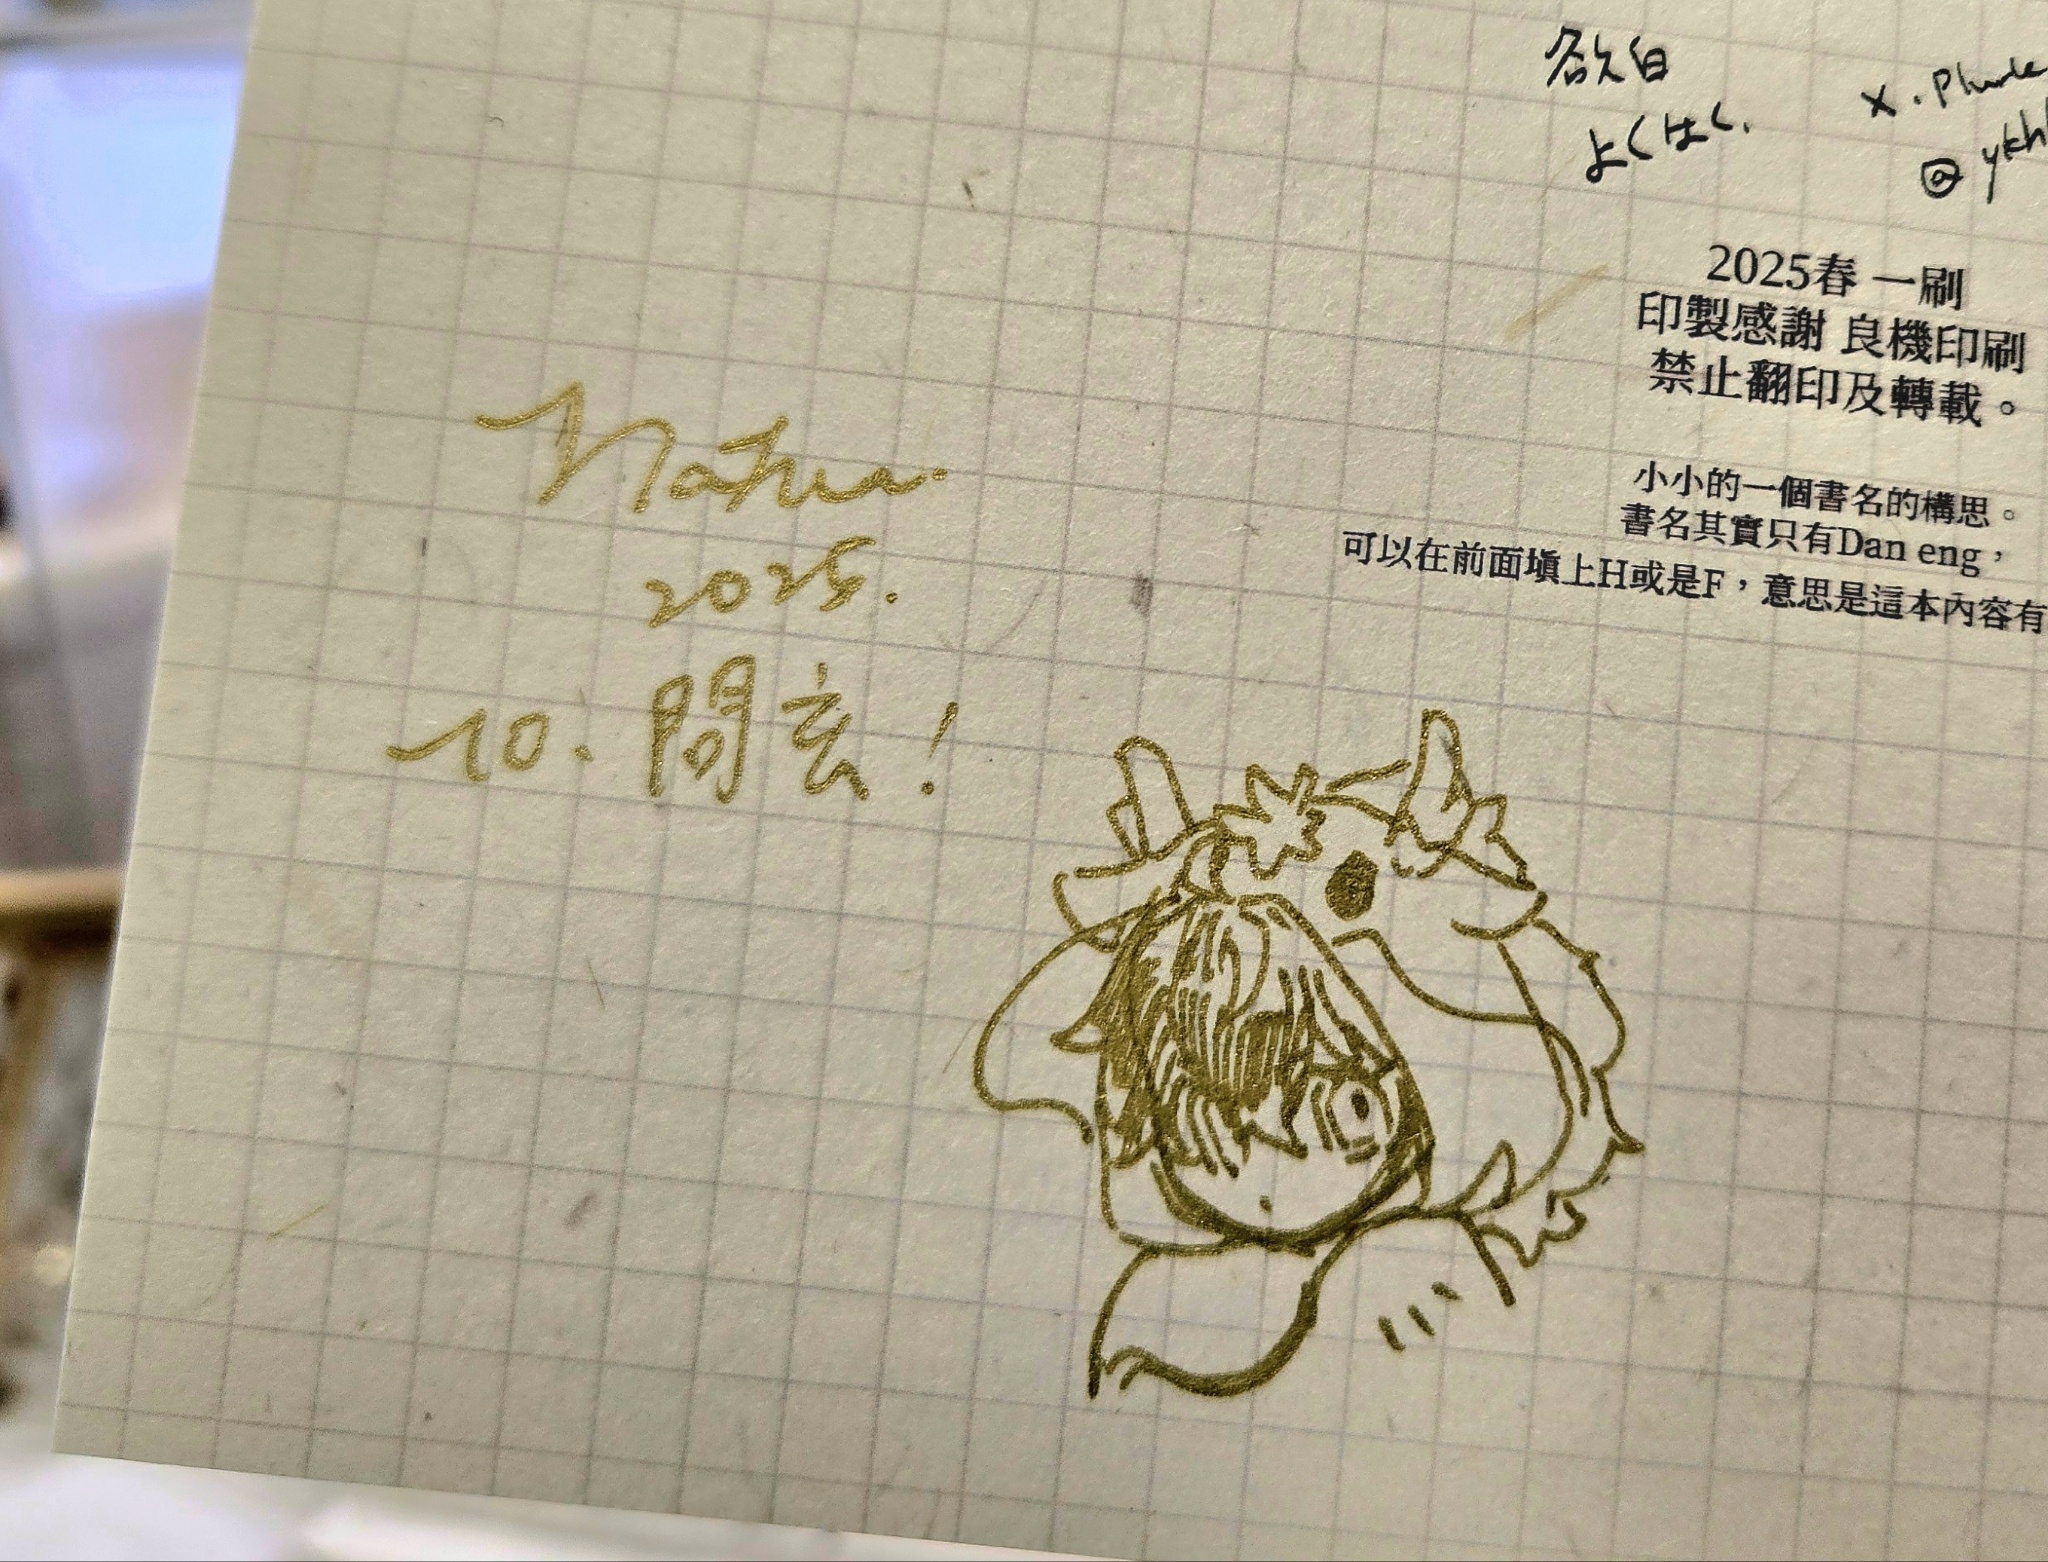 欲白
よくはく.
X.
@
2025春 一刷
印製感謝 良機印刷
禁止翻印及轉載。
小小的一個書名的構思。
書名其實只有Dan eng，
可以在前面填上H或是F，意思是這本內容有
2025.
10. 閃玄！